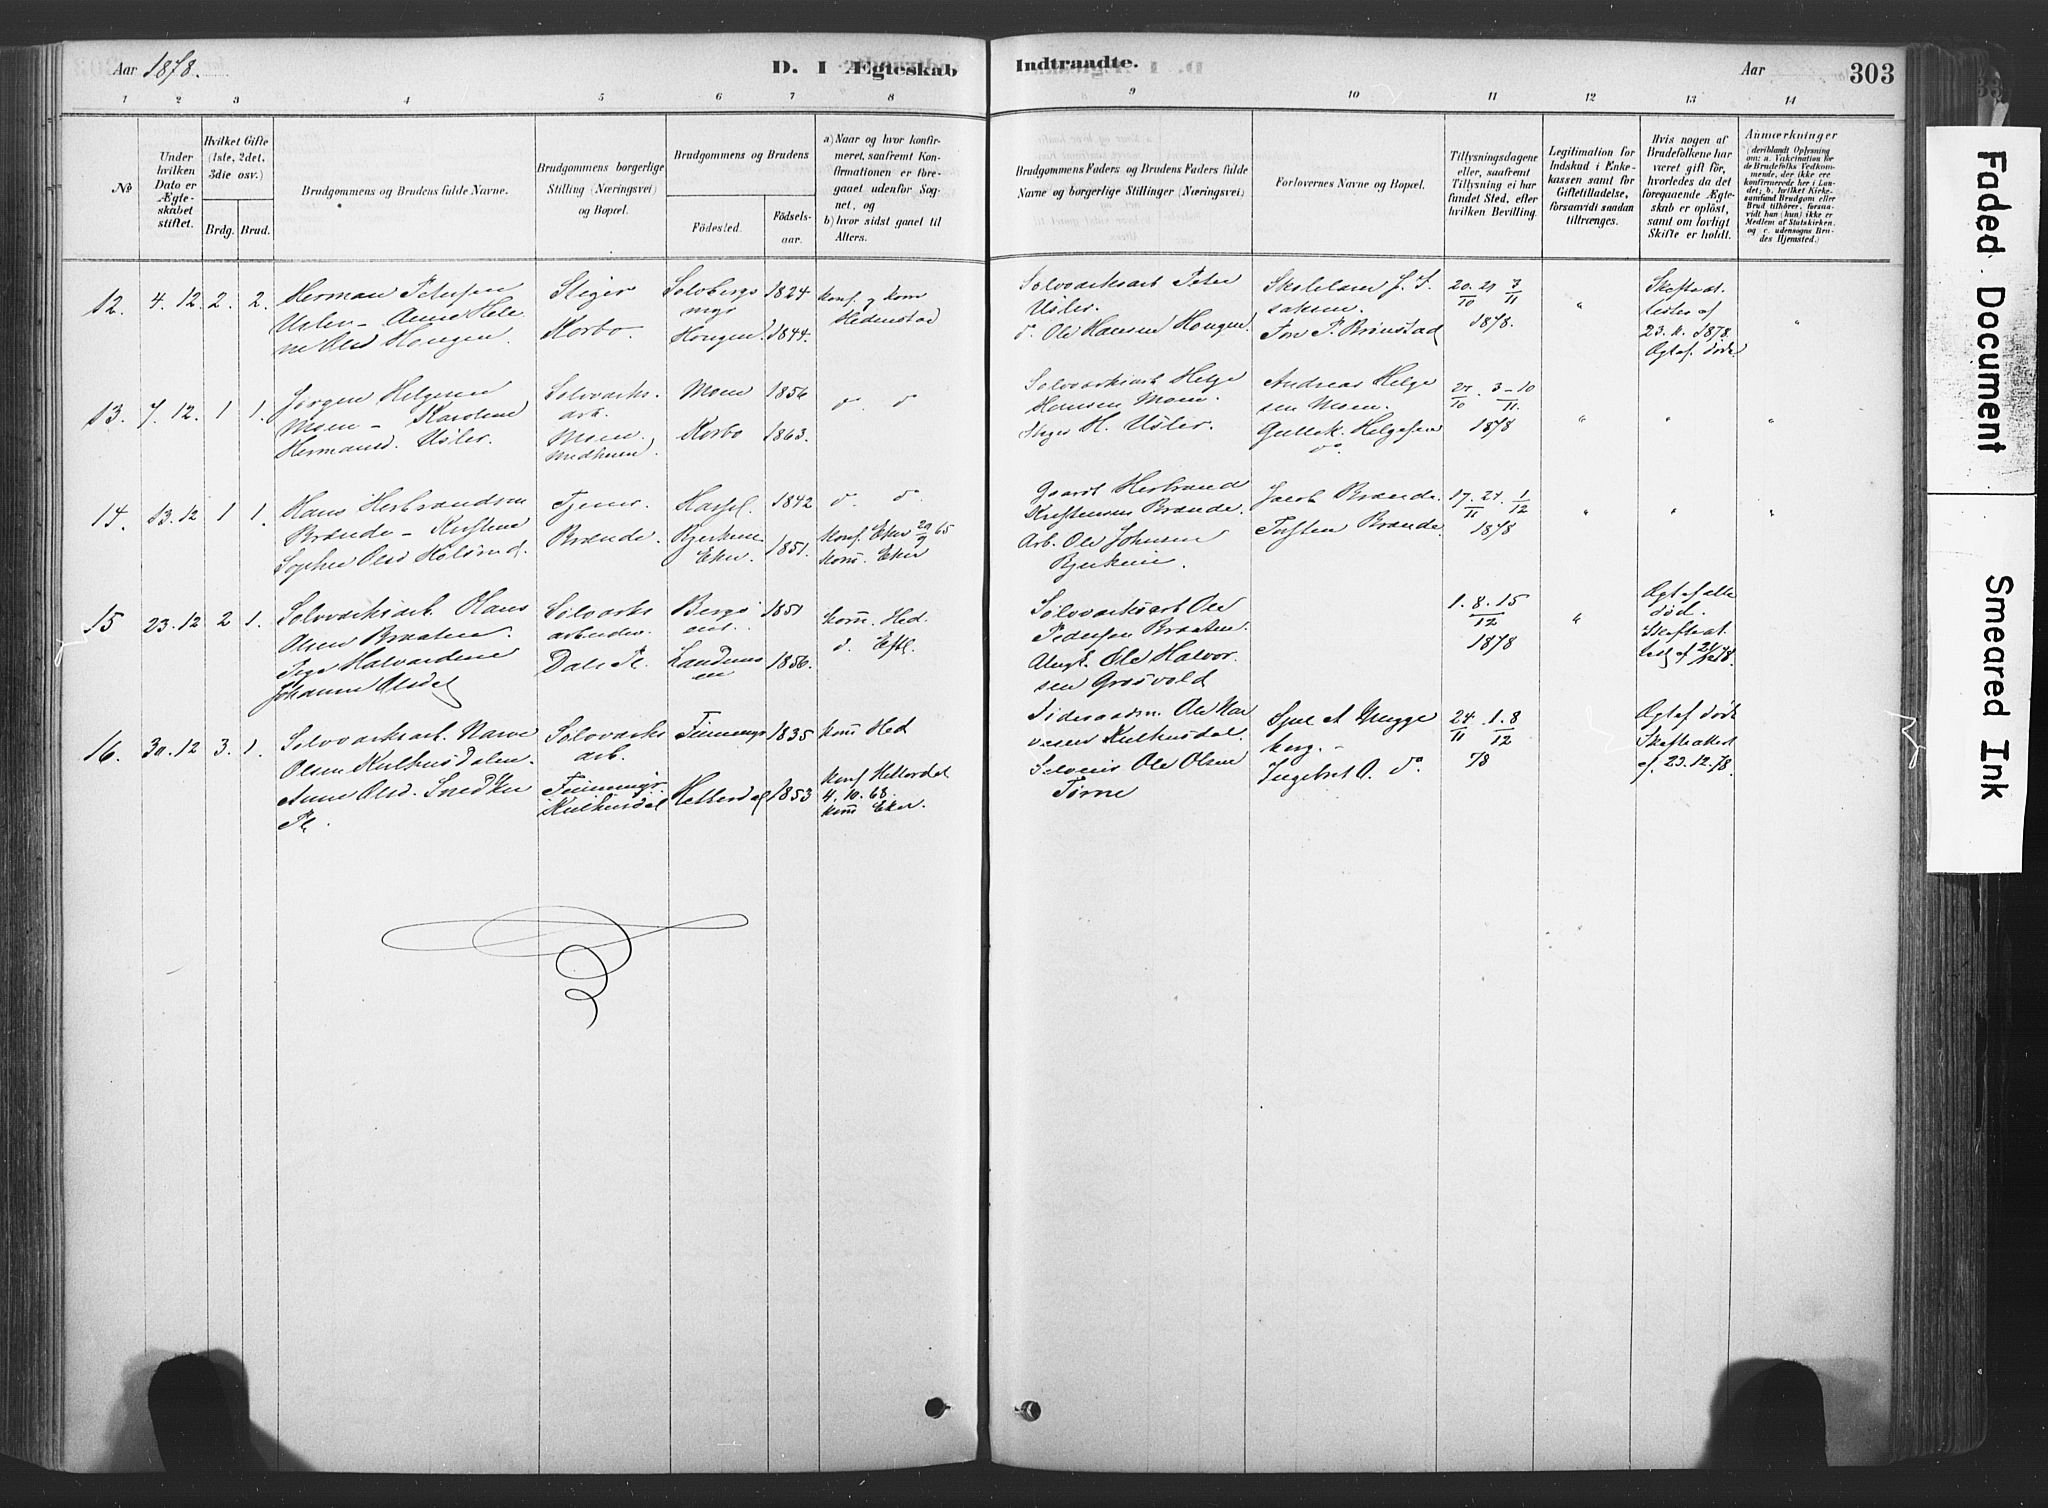 Aar 1878.
D. I Ægteskab
Indtraadte.
Aar
303
1 2 3 4 5 6 7 8 9 10 11 12 13 14
No
Under
hvilken
Dato er
Ægte-
skabet
stiftet.
Hvilket Gifte
(1ste, 2det,
3die osv.)
Brdg. Brud.
Brudgommens og Brudens fulde Navne.
Brudgommens borgerlige
Stilling (Næringsvei)
og Bopæl.
Brudgommens og Brudens
Födested.
Födsels-
aar.
a) Naar og hvor konfir-
meret, saafremt Kon-
firmationen er fore-
gaaet udenfor Sog-
net, og
b) hvor sidst gaaet til
Alters.
Brudgommens Faders og Brudens Faders fulde
Navne og borgerlige Stillinger (Næringsvei)
Forlovernes Navne og Bopæl.
Tillysningsdagene
eller, saafremt
Tillysning ei har
fundet Sted, efter
hvilken Bevilling.
Legitimation for
Indskud i Enke-
kassen samt for
Giftetilladelse,
forsaavidt saadan
tiltrænges.
Hvis nogen af
Brudefolkene har
været gift för,
hvorledes da det
foregaaende Ægte-
skab er oplöst,
samt om lovligt
Skifte er holdt.
Anmærkninger
(deriblandt Oplysning
om: a. Vakcination for
de Brudefolks Vedkom-
mende, der ikke ere
konfirmerede her i Lan-
det; b. hvilket Kirke-
samfund Brudgom eller
Brud tilhörer, forsaa-
vidt han (hun) ikke er
Medlem af Statskirken,
og c. udensogns Bru-
des Hjemsted.)
12. 4. 12. 2. 2.
Herman Petersen
Usler - Anne Hele
ne Olsd Hougen.
Stiger
Korbo.
Solvbergs
Hougen
1824
1844.
Konf. og Kom
Hedenstad
Solvverksarb Peter
Usler.
do. Ole Hansen Hougen
Skolelærer J. I
saksen.
Tov P. Brönstad
20. 27 3
10 11
1878.
"
Skifteat.
tester af
23. 11. 1878.
Ægtef. döde
"
13. 7. 12. 1 1.
Jörgen Helgesen
Moen - Karoline
Hermansd. Usler.
Sölvverks.
arb.
Moen
Medheien.
Moen
Korbo
1856
1863.
do. do
Sölvverksarb Helge
Hansen Moen.
Stiger H. Usler.
Andreas Helge
sen Moen.
Gullik. Helgesen
do.
27. 3 - 10
10 11.
1878
" " "
14. 13. 12 1 1.
Hans Herbrandsen
Brænde - Kirstine
Sophie Olsd
Tjener
Brænde.
Hassel.
Bjerkene
Eker.
1842
1851.
do. do.
Konf. Eker 29/9 65
Kom. Eker
Gaardb Herbrand
Kristensen Brænde.
Arb. Ole Johnsen
Bjerkene.
Jacob Brænde.
Torsten Brænde.
17. 24. 1
11 12
1878
" " "
15 23. 12 2 1.
Sölvverksarb. Hans
Olsen Braaten.
Johanne Olsd
Sölvverks
arbeider.
Dals Pl.
1851
1856.
Kom. Hed.
do. Eftl.
Sölvverksarb Ole
Pedersen Braaten.
Ole Halvor.
sen Grosvold
1. 8. 15
12
1878
"
Ægtefælle
död.
Skifteat.
16. 30. 12 3. 1.
Sölvverksarb. Narve
Olsen Kulhusdalen.
Anne Olsd. Snedker
Pl.
Sölvverks
arb.
Kulhusdal
Hitterdal
1835
1853
Kom Hed
Konf Hitterdal
4. 10. 68.
Kom Eker.
Ole Nar
vesen Kulhusdal.
Ole Olsen
Tørne
Myggeberg. -
Ingebret O. do.
24. 1. 8
11 12
78
Ægtef döde
Skifteattest
af. 23. 12. 78.
Faded Document
Smeared Ink